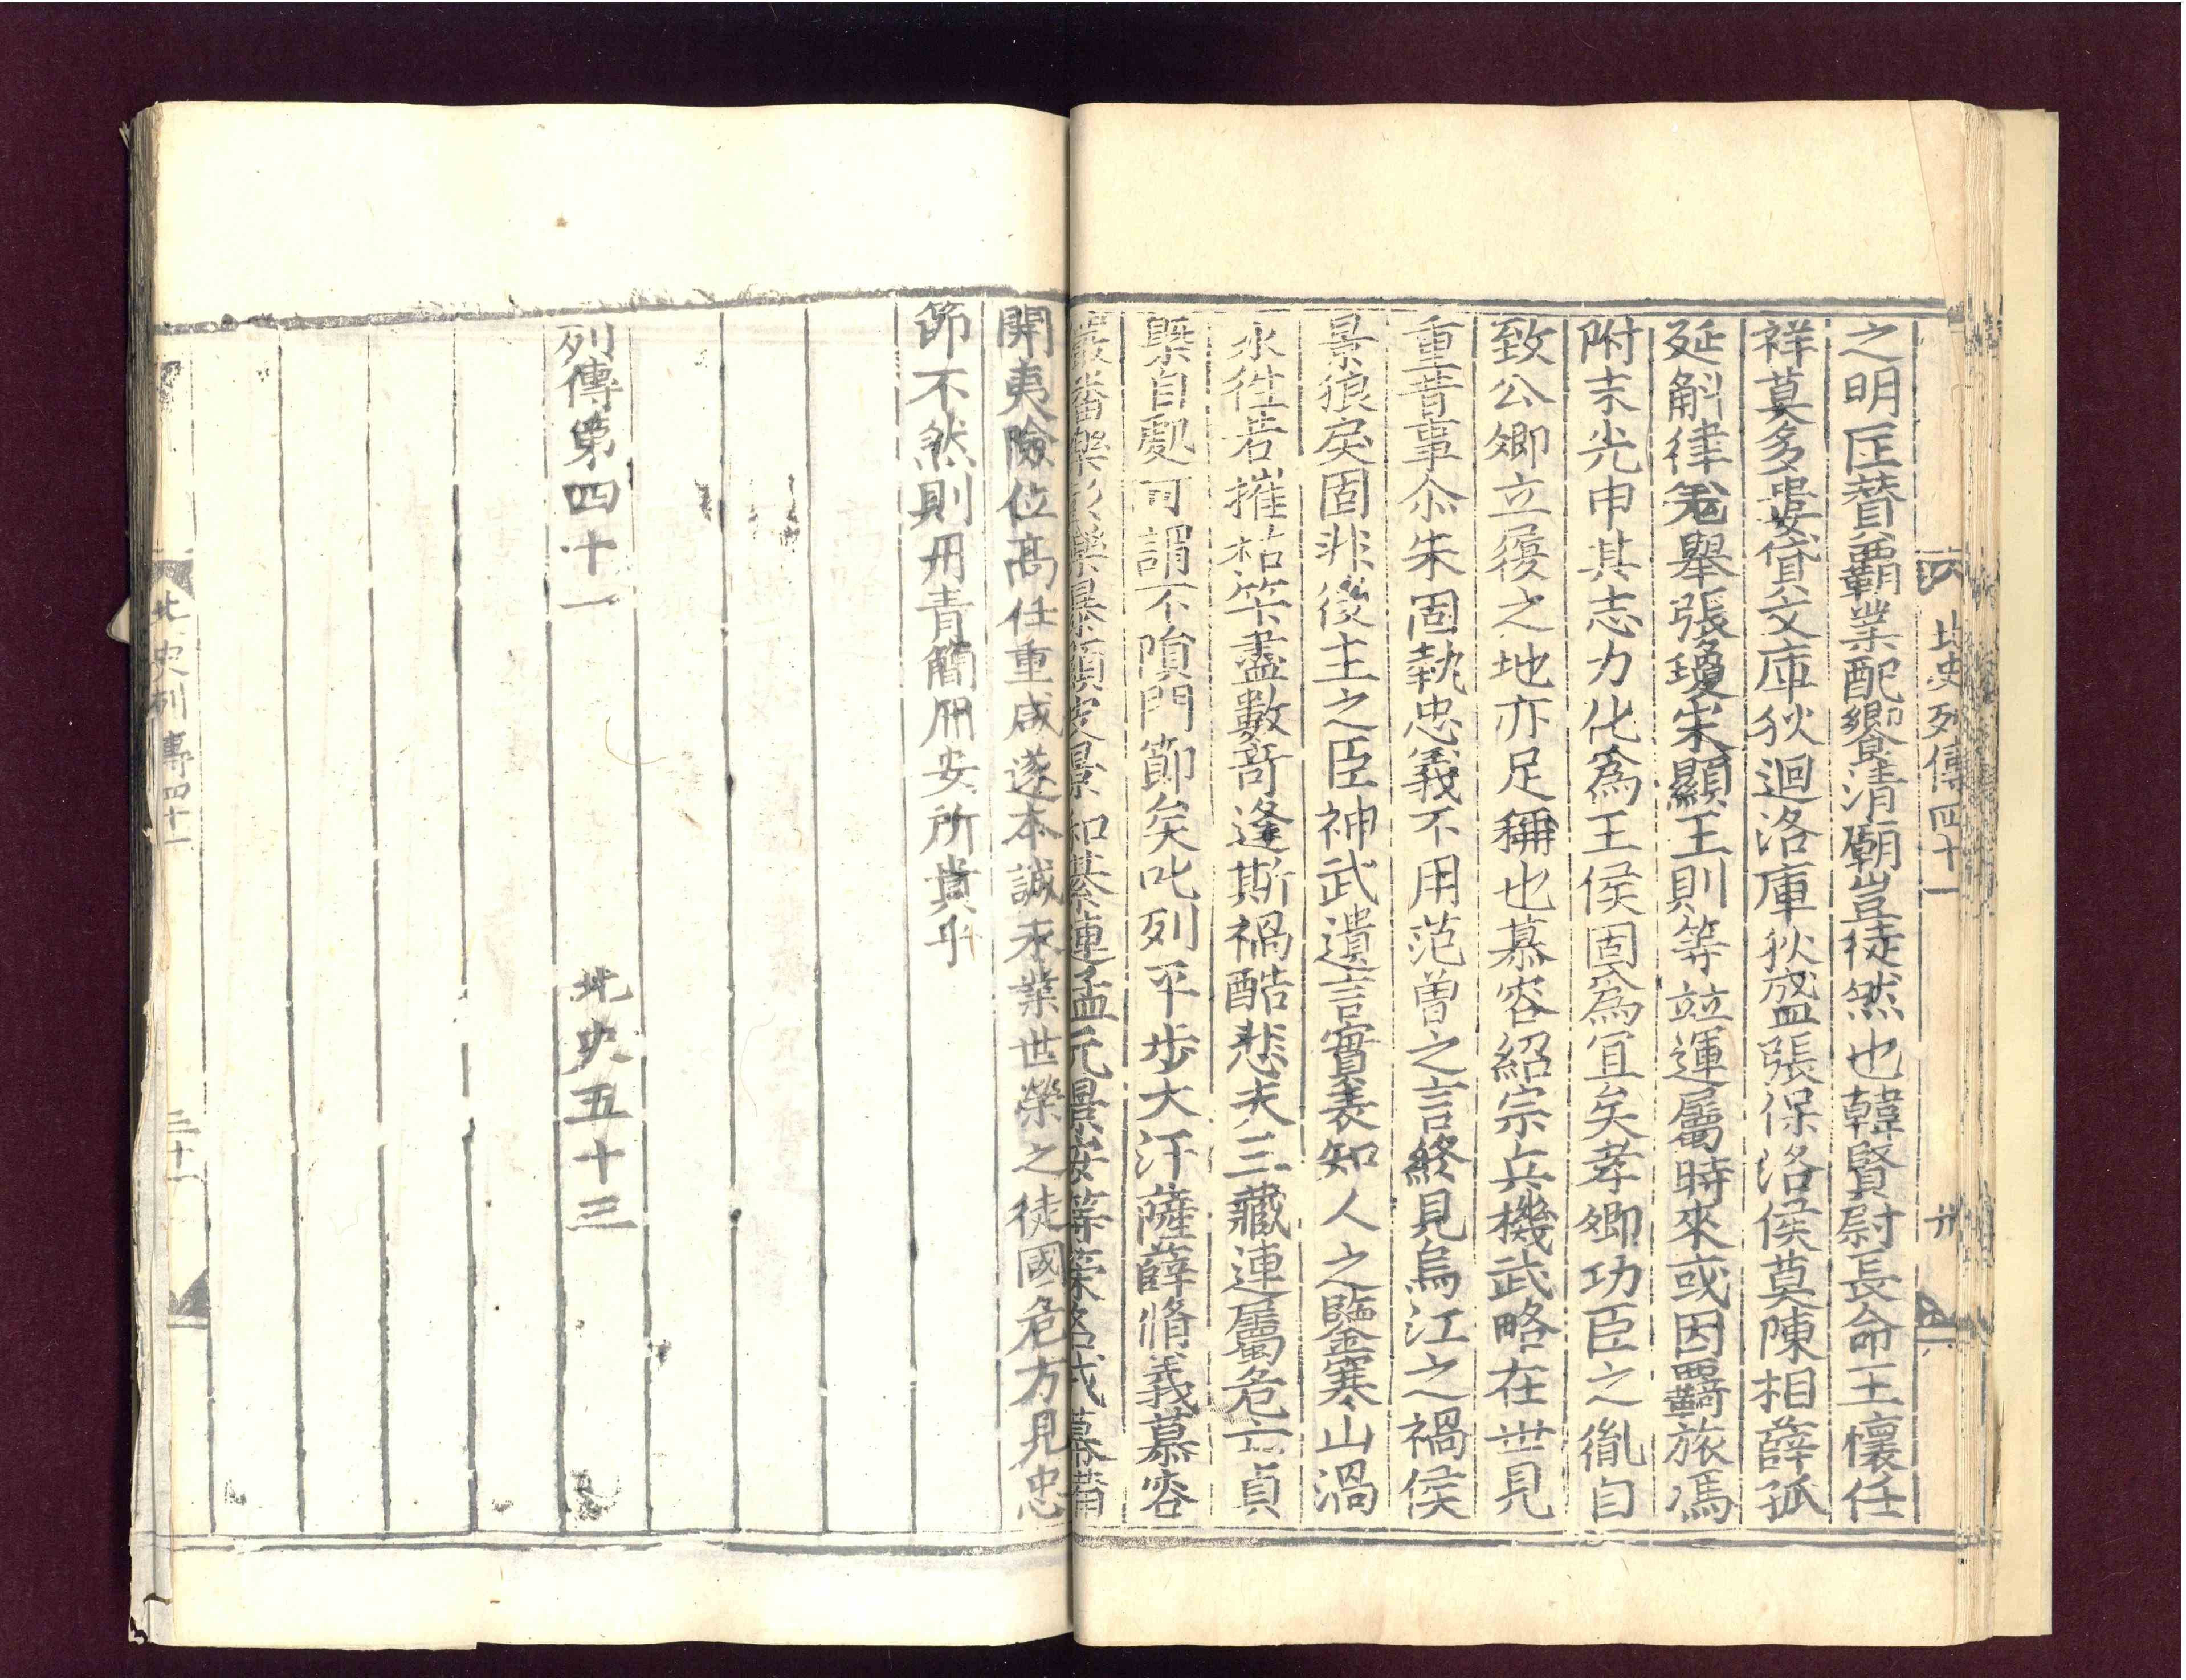 北史列傳四十一
廿
之明匡賛霸業配饗清廟豈徒然也韓賢尉長命王懷任
祥莫多婁貸文庫狄迴洛庫狄盛張保洛侯莫陳相薛孤
延斛律羌舉張瓊宋顯王則等竝運屬時來或因羇旅馮
附末光申其志力化為王侯固為冝矣孝卿功臣之胤自
致公卿立履之地亦足稱也慕容紹宗兵機武略在世見
重昔事尒朱固執忠義不用范曽之言終見烏江之禍侯
景狼戾固非後主之臣神武遺言實表知人之鑒寒山渦
水徃若摧枯筭盡數奇逢斯禍酷悲夫三藏連屬危亡貞
槩自處可謂不隕門節矣叱列平步大汗薩薛脩義慕容
儼潘樂彭樂暴顯皮景和綦連猛元景安等策名戎幕備
開夷險位髙任重咸遂本誠永業世榮之徒國危方見忠
節不然則丹青簡冊安所貴乎
列傳第四十一　北史五十三
北史列傳四十一
二十一